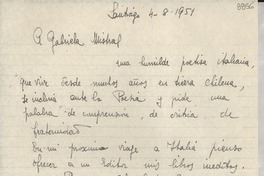 8856
Santiago 4-8-1951
A Gabriela Mistral
una humilde poetisa italiana,
que vive desde muchos años en tierra chilena,
se inclina ante la Poesía y pide una
palabra de comprensión, de critica, de
fraternidad
En mi proximo viaje a Italia pienso
ofrecer a un Editor mis libros ineditos.